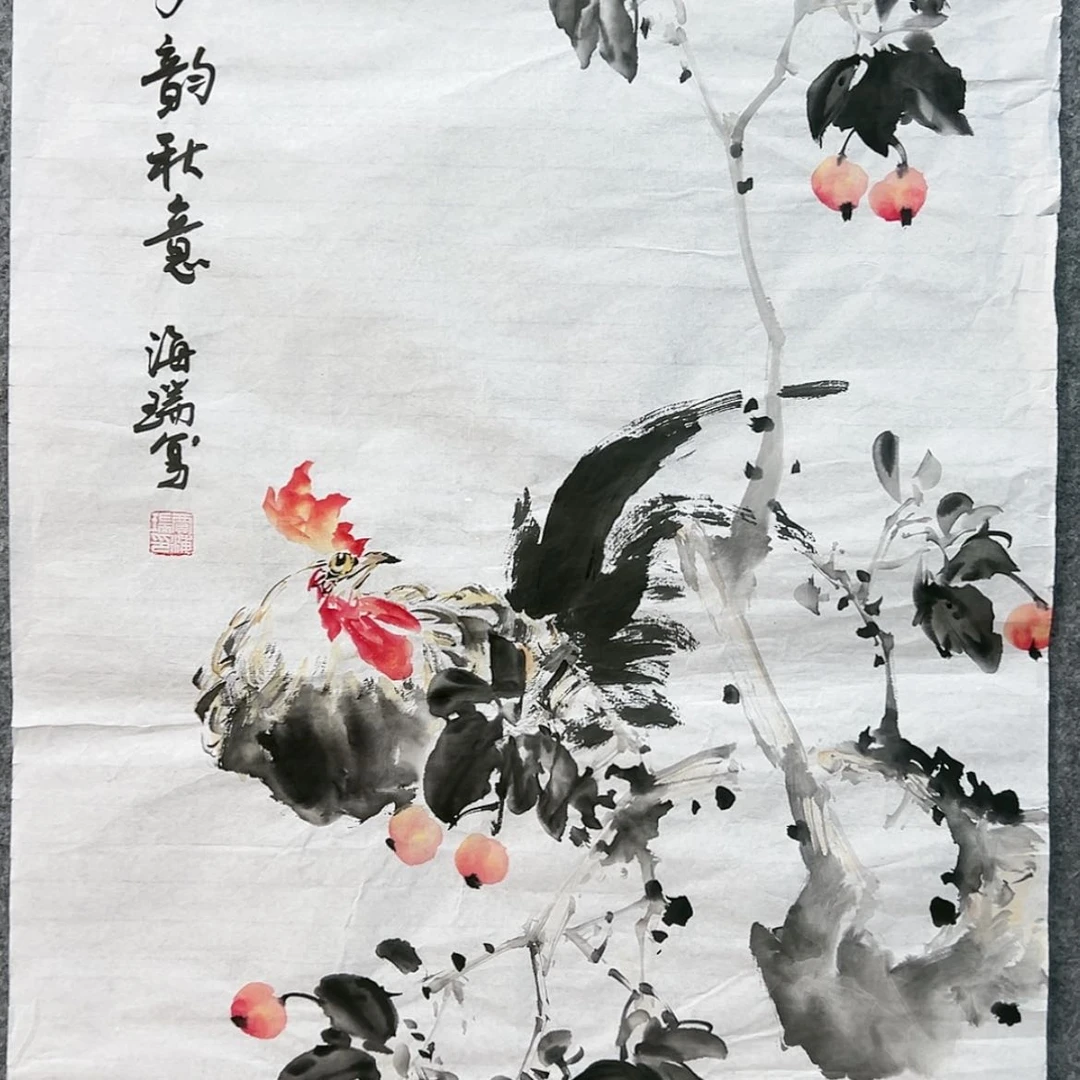 韵秋意
海瑞写